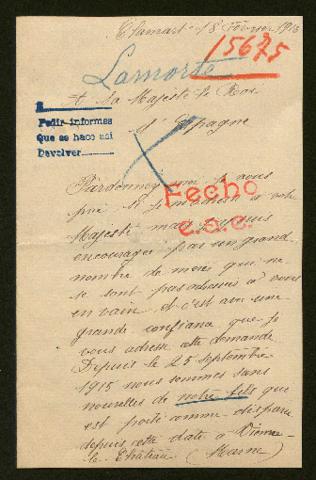 Clamart 18 Février 1916
15675
Lamorte
A sa Majesté le Roi
d'Espagne
Pedir informes
Que se hace asi
Devolver
Fecho
e.a.c.
Pardonnez moi je vous
prie si je m'adresse à votre
Majesté mais je suis
encouragée par un grand
nombre de mères qui ne
se sont pas adressées à vous
en vain, et c'est avec une
grande confiance que je
vous adresse cette demande
Depuis le 25 septembre
1915 nous sommes sans
nouvelles de notre fils qui
est porté comme disparu
depuis cette date à Vienne-
le-Château (Marne)